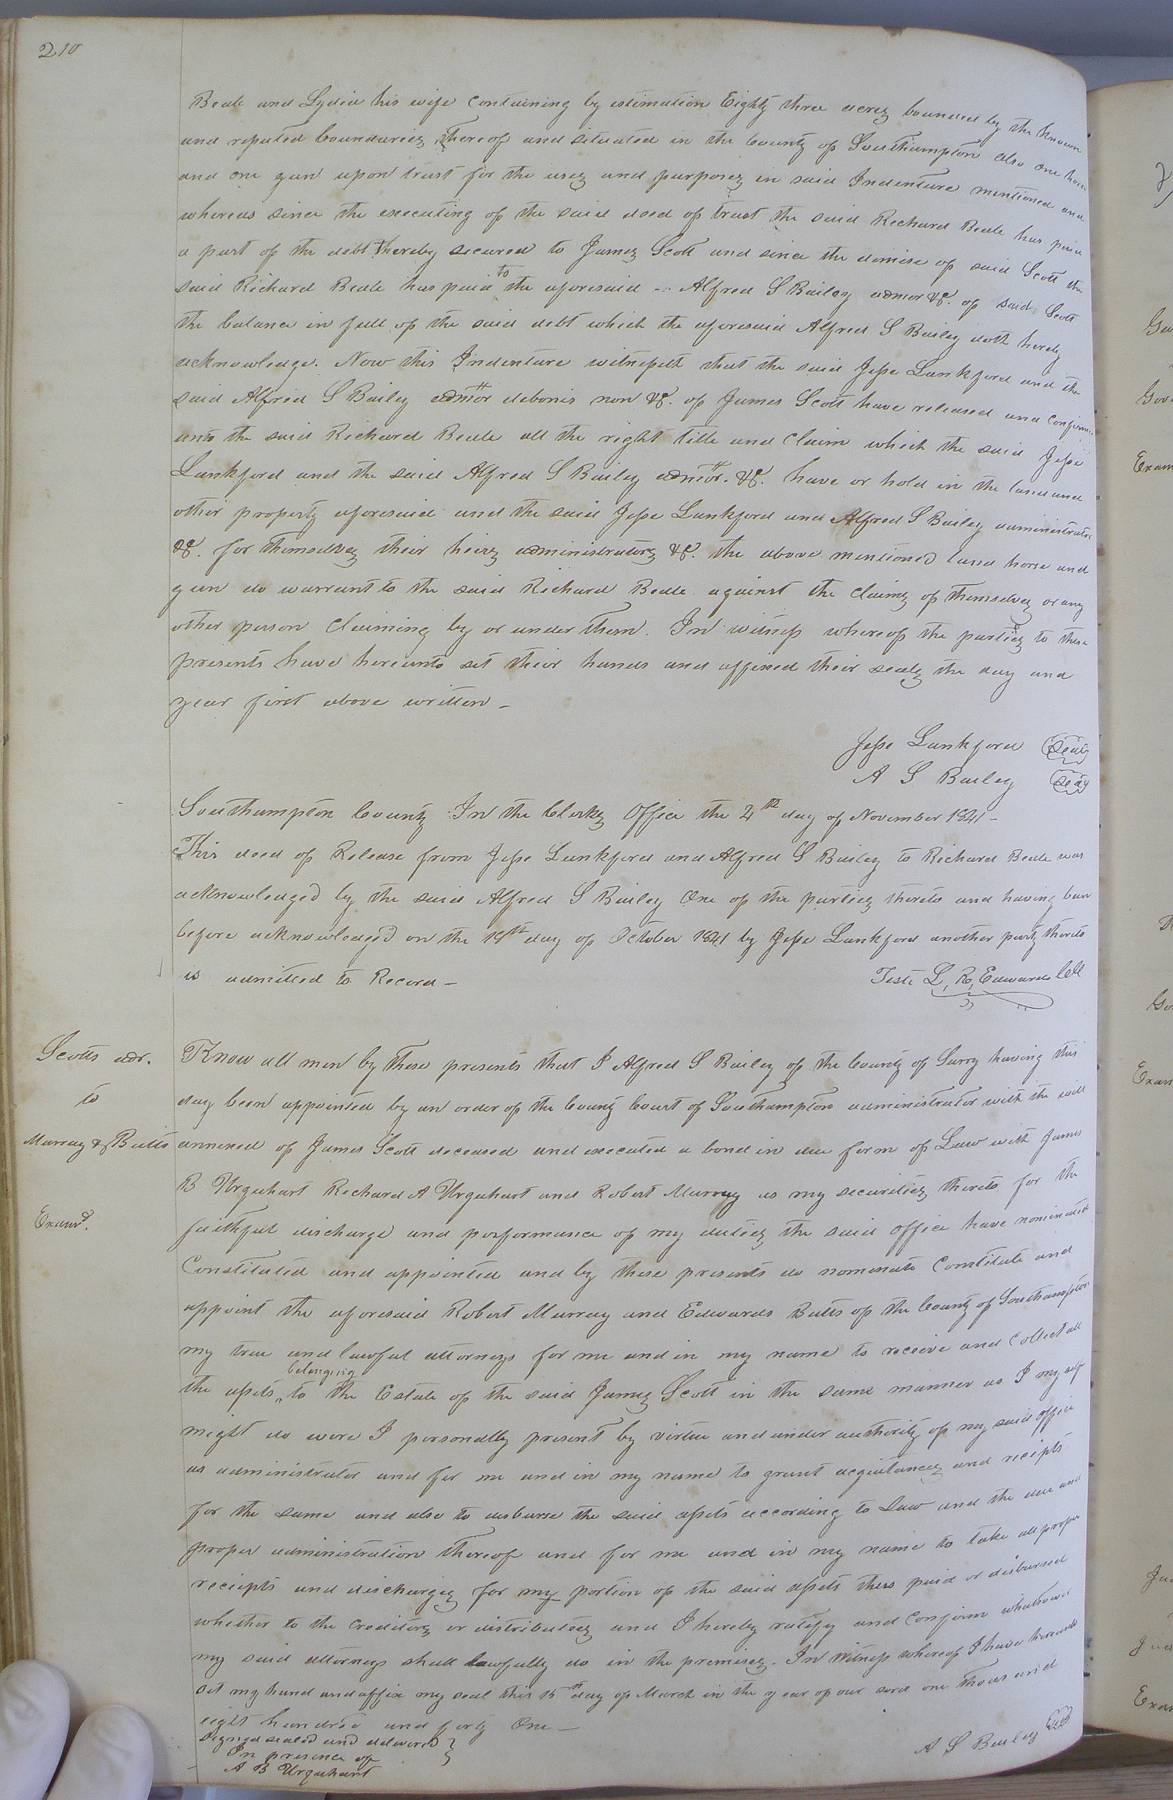 210
Beale and Lydia his wife containing by estimation Eighty three acres bounded by the known
and reputed boundaries thereof and situated in the County of Southampton also one horse
and one gun upon trust for the uses and purposes in said Indenture mentioned and
whereas since the executing of the said deed of trust the said Richard Beale has paid
a part of the debt thereby secured to James Scott and since the demise of said Scott the
said Richard Beale has paid to the aforesaid - Alfred S Bailey admor &c. of said Scott
the balance in full of the said debt which the aforesaid Alfred S Bailey doth hereby
acknowledge. Now this Indenture witnesseth that the said Jesse Lankford and the
said Alfred S Bailey admor debonis non &c. of James Scott have released and confirm
unto the said Richard Beale all the right title and claim which the said Jesse
Lankford and the said Alfred S Bailey admor. &c. have or hold in the land and
other property aforesaid and the said Jesse Lankford and Alfred S Bailey administrator
&c. for themselves their heirs administrators &c. the above mentioned land horse and
gun do warrant to the said Richard Beale against the claims of themselves or any
other person claiming by or under them. In witness whereof the parties to these
presents have hereunto set their hands and affixed their seals the day and
year first above written -
Jesse Lankford Seal
A S Bailey Seal
Southampton County In the Clerks Office the 2th day of November 1841 -
This deed of Release from Jesse Lankford and Alfred S Bailey to Richard Beale was
acknowledged by the said Alfred S Bailey One of the parties thereto and having been
before acknowledged on the 19th day of October 1841 by Jesse Lankford another party thereto
is admitted to Record -
Teste L. R. Edwards
Scotts adr.
to
Murray & Butts
Examd.
Know all men by these presents that I Alfred S Bailey of the County of Surry having this
day been appointed by an order of the County Court of Southampton administrator with the will
annexed of James Scott deceased and executed a bond in due form of Law with James
B Urquhart Richard A Urquhart and Robert Murray as my securities thereto for the
faithful discharge and performance of my duties the said office have nominated
Constituted and appointed and by these presents do nominate Constitute and
appoint the aforesaid Robert Murray and Edwards Butts of the County of Southampton
my true and lawful attorneys for me and in my name to receive and collect all
the assets belonging to the Estate of the said James Scott in the same manner as I my self
might do were I personally present by virtue and under authority of my said office
as administrator and for me and in my name to grant acquitances and reciepts
for the same and also to disburse the said assets according to Law and the due and
proper administration thereof and for me and in my name to take all proper
reciepts and discharges for my portion of the said assets thus paid or disbursed
whether to the creditors or distributees and I hereby ratify and confirm whatsoever
my said attorneys shall lawfully do in the premises. In Witness whereof I have hereunto
set my hand and affix my seal this 15th day of March in the year of our Lord one thousand
eight hundred and forty One -
Signed sealed and delivered
In presence of
A B Urquhart
A S Bailey Seal